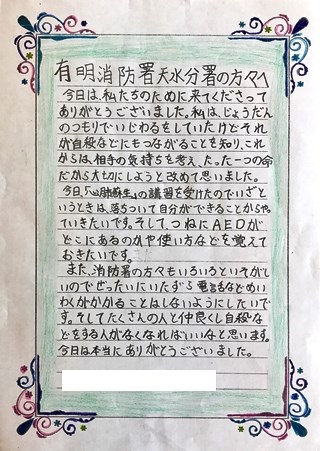 有明消防署天水分署の方々へ
今日は、私たちのために来てくださって
ありがとうございました。私は、じょうだん
のつもりでいじわるをしていたけどそれ
が自殺などにもつながることを知り、これ
からは、相手の気持ちを考え、たった一つの命
だから大切にしようと改めて思いました。
今日、「心肺蘇生」の講習を受けたのでいざと
いうときは、落ちついて自分ができることからやっ
ていきたいです。そして、つねにAEDが
どこにあるのかや使い方などを覚えて
おきたいです。
また、消防署の方々もいろいろといそがし
いのでぜったいにいたずら電話などめい
わくがかかることはしないようにしたいで
す。そしてたくさんの人と仲良くし自殺な
どをする人がなくなればいいなと思います。
今日は本当にありがとうございました。